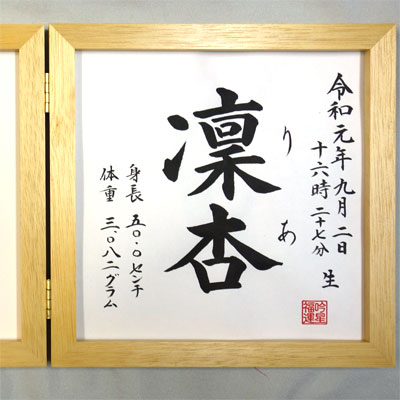 令和元年九月二日
十六時二十七分 生
りあ
凛杏
身長 五〇.〇センチ
体重 三.〇八二グラム
吟星福運